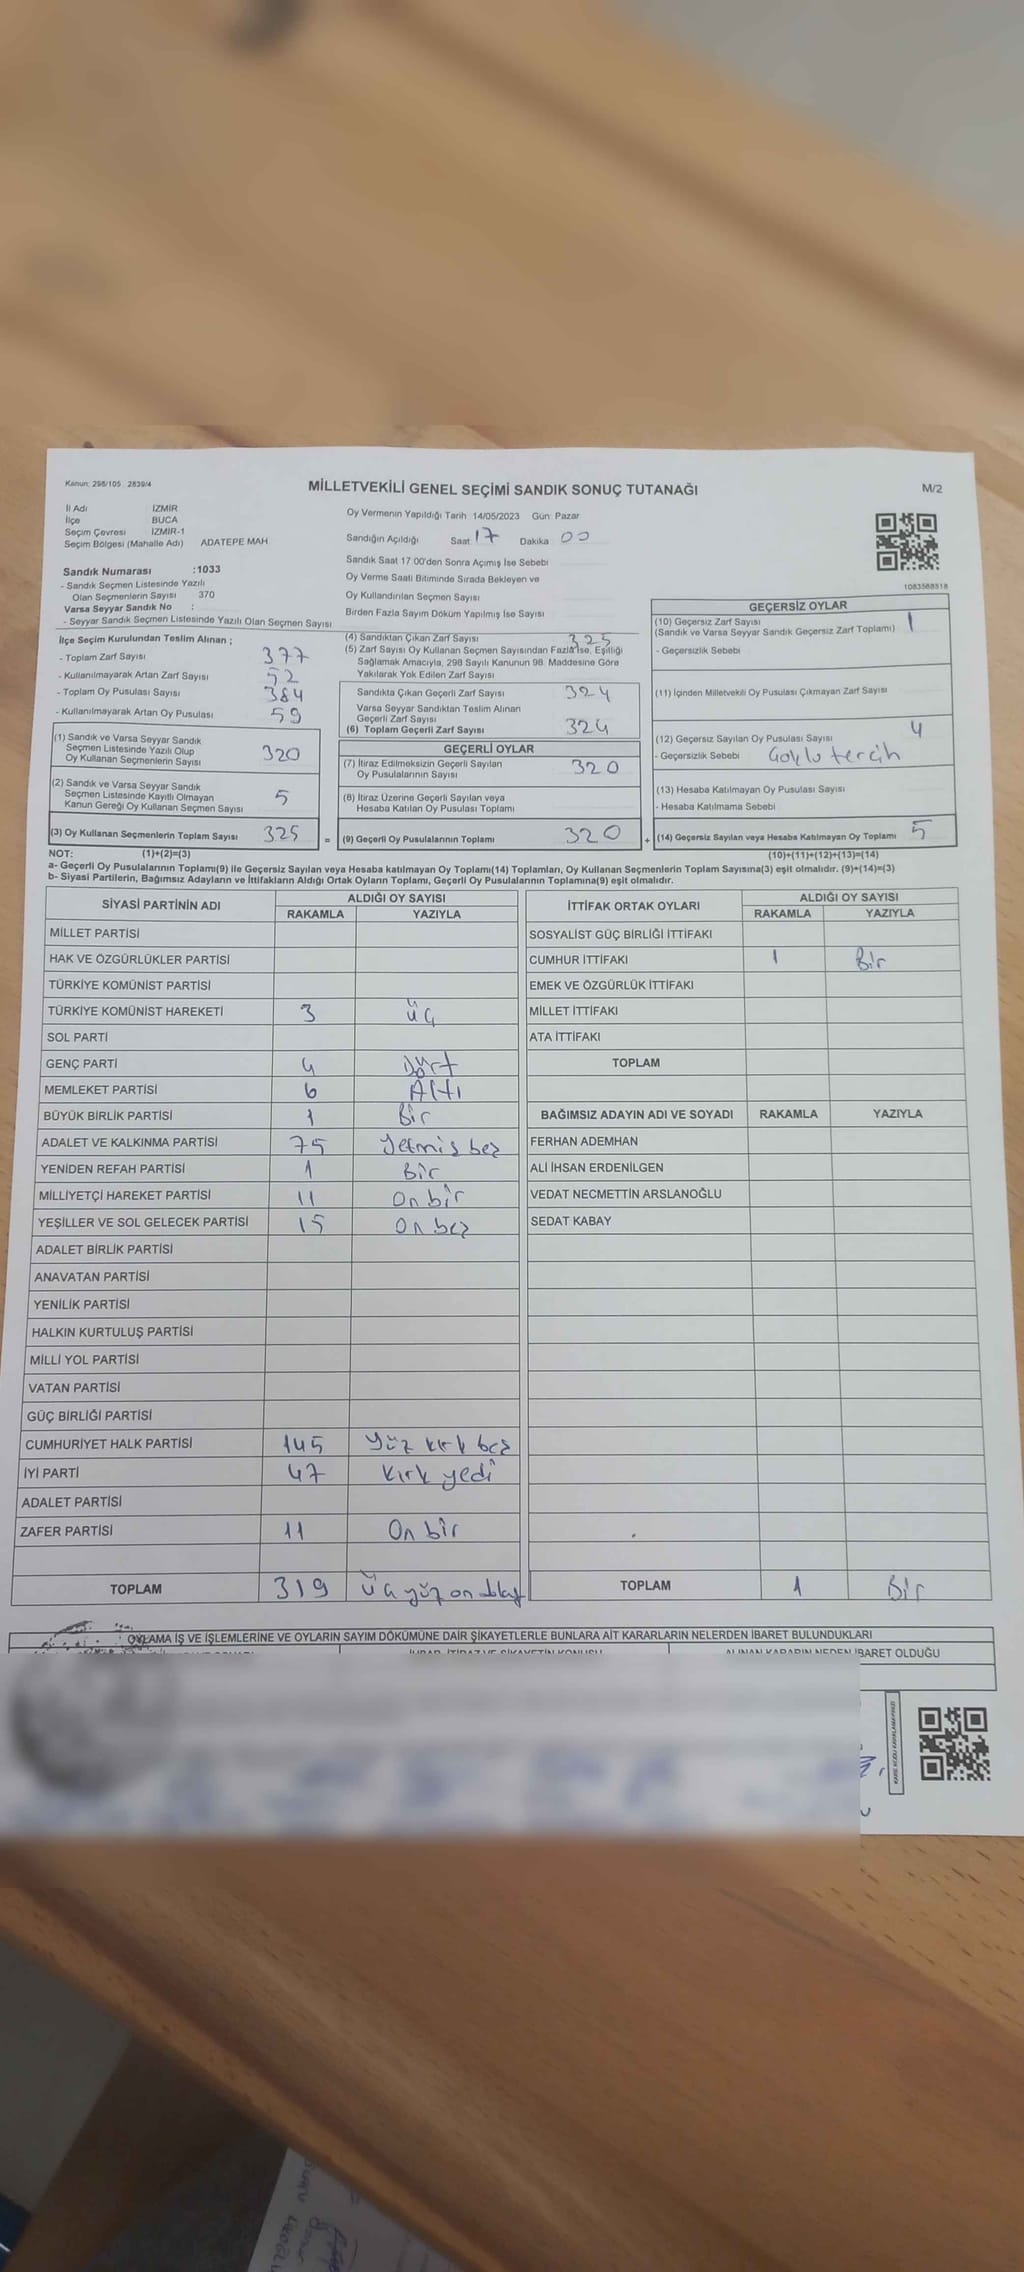 Kanun: 298/105 2839/4
MİLLETVEKİLİ GENEL SEÇİMİ SANDIK SONUÇ TUTANAĞI
M/2
İl Adı İZMİR
İlçe BUCA
Seçim Çevresi İZMİR-1
Seçim Bölgesi (Mahalle Adı) ADATEPE MAH
Oy Vermenin Yapıldığı Tarih 14/05/2023 Gün: Pazar
Sandığın Açıldığı Saat 17 Dakika 00
Sandık Saat 17.00'den Sonra Açımış İse Sebebi
Oy Verme Saati Bitiminde Sırada Bekleyen ve
Oy Kullandırılan Seçmen Sayısı
Birden Fazla Sayım Döküm Yapılmış İse Sayısı
1083588518
Sandık Numarası :1033
- Sandık Seçmen Listesinde Yazılı
Olan Seçmenlerin Sayısı 370
Varsa Seyyar Sandık No :
- Seyyar Sandık Seçmen Listesinde Yazılı Olan Seçmen Sayısı
İlçe Seçim Kurulundan Teslim Alınan ;
- Toplam Zarf Sayısı 377
- Kullanılmayarak Artan Zarf Sayısı 52
- Toplam Oy Pusulası Sayısı 384
- Kullanılmayarak Artan Oy Pusulası 59
(1) Sandık ve Varsa Seyyar Sandık
Seçmen Listesinde Yazılı Olup
Oy Kullanan Seçmenlerin Sayısı 320
(2) Sandık ve Varsa Seyyar Sandık
Seçmen Listesinde Kayıtlı Olmayan
Kanun Gereği Oy Kullanan Seçmen Sayısı 5
(3) Oy Kullanan Seçmenlerin Toplam Sayısı 325
=
(4) Sandıktan Çıkan Zarf Sayısı 325
(5) Zarf Sayısı Oy Kullanan Seçmen Sayısından Fazla İse, Eşitliği
Sağlamak Amacıyla, 298 Sayılı Kanunun 98. Maddesine Göre
Yakılarak Yok Edilen Zarf Sayısı
Sandıkta Çıkan Geçerli Zarf Sayısı 324
Varsa Seyyar Sandıktan Teslim Alınan
Geçerli Zarf Sayısı
(6) Toplam Geçerli Zarf Sayısı 324
GEÇERLİ OYLAR
(7) İtiraz Edilmeksizin Geçerli Sayılan
Oy Pusulalarının Sayısı 320
(8) İtiraz Üzerine Geçerli Sayılan veya
Hesaba Katılan Oy Pusulası Toplamı
(9) Geçerli Oy Pusulalarının Toplamı 320
+
GEÇERSİZ OYLAR
(10) Geçersiz Zarf Sayısı 1
(Sandık ve Varsa Seyyar Sandık Geçersiz Zarf Toplamı)
- Geçersizlik Sebebi
(11) İçinden Milletvekili Oy Pusulası Çıkmayan Zarf Sayısı
(12) Geçersiz Sayılan Oy Pusulası Sayısı 4
- Geçersizlik Sebebi Çoklu tercih
(13) Hesaba Katılmayan Oy Pusulası Sayısı
- Hesaba Katılmama Sebebi
(14) Geçersiz Sayılan veya Hesaba Katılmayan Oy Toplamı 5
NOT: (1)+(2)=(3) (10)+(11)+(12)+(13)=(14)
a- Geçerli Oy Pusulalarının Toplamı(9) ile Geçersiz Sayılan veya Hesaba katılmayan Oy Toplamı(14) Toplamları, Oy Kullanan Seçmenlerin Toplam Sayısına(3) eşit olmalıdır. (9)+(14)=(3)
b- Siyasi Partilerin, Bağımsız Adayların ve İttifakların Aldığı Ortak Oyların Toplamı, Geçerli Oy Pusulalarının Toplamına(9) eşit olmalıdır.
SİYASİ PARTİNİN ADI ALDIĞI OY SAYISI
RAKAMLA YAZIYLA
MİLLET PARTİSİ
HAK VE ÖZGÜRLÜKLER PARTİSİ
TÜRKİYE KOMÜNİST PARTİSİ
TÜRKİYE KOMÜNİST HAREKETİ 3 üç
SOL PARTİ
GENÇ PARTİ 4 Dört
MEMLEKET PARTİSİ 6 Altı
BÜYÜK BİRLİK PARTİSİ 1 Bir
ADALET VE KALKINMA PARTİSİ 75 Yetmiş beş
YENİDEN REFAH PARTİSİ 1 Bir
MİLLİYETÇİ HAREKET PARTİSİ 11 On bir
YEŞİLLER VE SOL GELECEK PARTİSİ 15 On beş
ADALET BİRLİK PARTİSİ
ANAVATAN PARTİSİ
YENİLİK PARTİSİ
HALKIN KURTULUŞ PARTİSİ
MİLLİ YOL PARTİSİ
VATAN PARTİSİ
GÜÇ BİRLİĞİ PARTİSİ
CUMHURİYET HALK PARTİSİ 145 Yüz kırk beş
İYİ PARTİ 47 Kırk yedi
ADALET PARTİSİ
ZAFER PARTİSİ 11 On bir
TOPLAM 319 Üç yüz on dokuz
İTTİFAK ORTAK OYLARI ALDIĞI OY SAYISI
RAKAMLA YAZIYLA
SOSYALİST GÜÇ BİRLİĞİ İTTİFAKI
CUMHUR İTTİFAKI 1 Bir
EMEK VE ÖZGÜRLÜK İTTİFAKI
MİLLET İTTİFAKI
ATA İTTİFAKI
TOPLAM
BAĞIMSIZ ADAYIN ADI VE SOYADI RAKAMLA YAZIYLA
FERHAN ADEMHAN
ALİ İHSAN ERDENİLGEN
VEDAT NECMETTİN ARSLANOĞLU
SEDAT KABAY
TOPLAM 1 Bir
OYLAMA İŞ VE İŞLEMLERİNE VE OYLARIN SAYIM DÖKÜMÜNE DAİR ŞİKAYETLERLE BUNLARA AİT KARARLARIN NELERDEN İBARET BULUNDUKLARI
ALINAN KARARIN NEDEN İBARET OLDUĞU